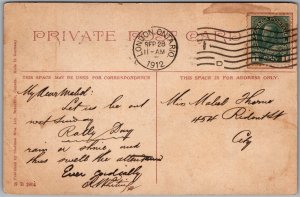 PRIVATE POST CARD
LONDON, ONTARIO
SEP 28
11-AM
1912
D
THIS SPACE MAY BE USED FOR CORRESPONDENCE
THIS SPACE IS FOR ADDRESS ONLY.
My dear Mabel:
Let us be out
next Sunday
Rally Day
rain or shine, and
thus swell the attendance
Ever cordially
Miss Mabel Thorne
454 Rident St
City